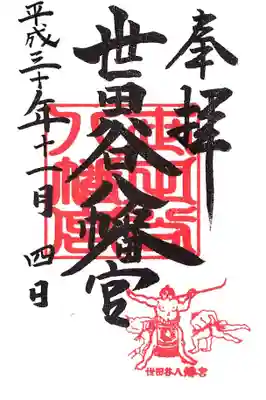 奉拝
世田谷八幡宮
平成三十年十一月四日
世田谷八幡宮
世田谷八幡宮